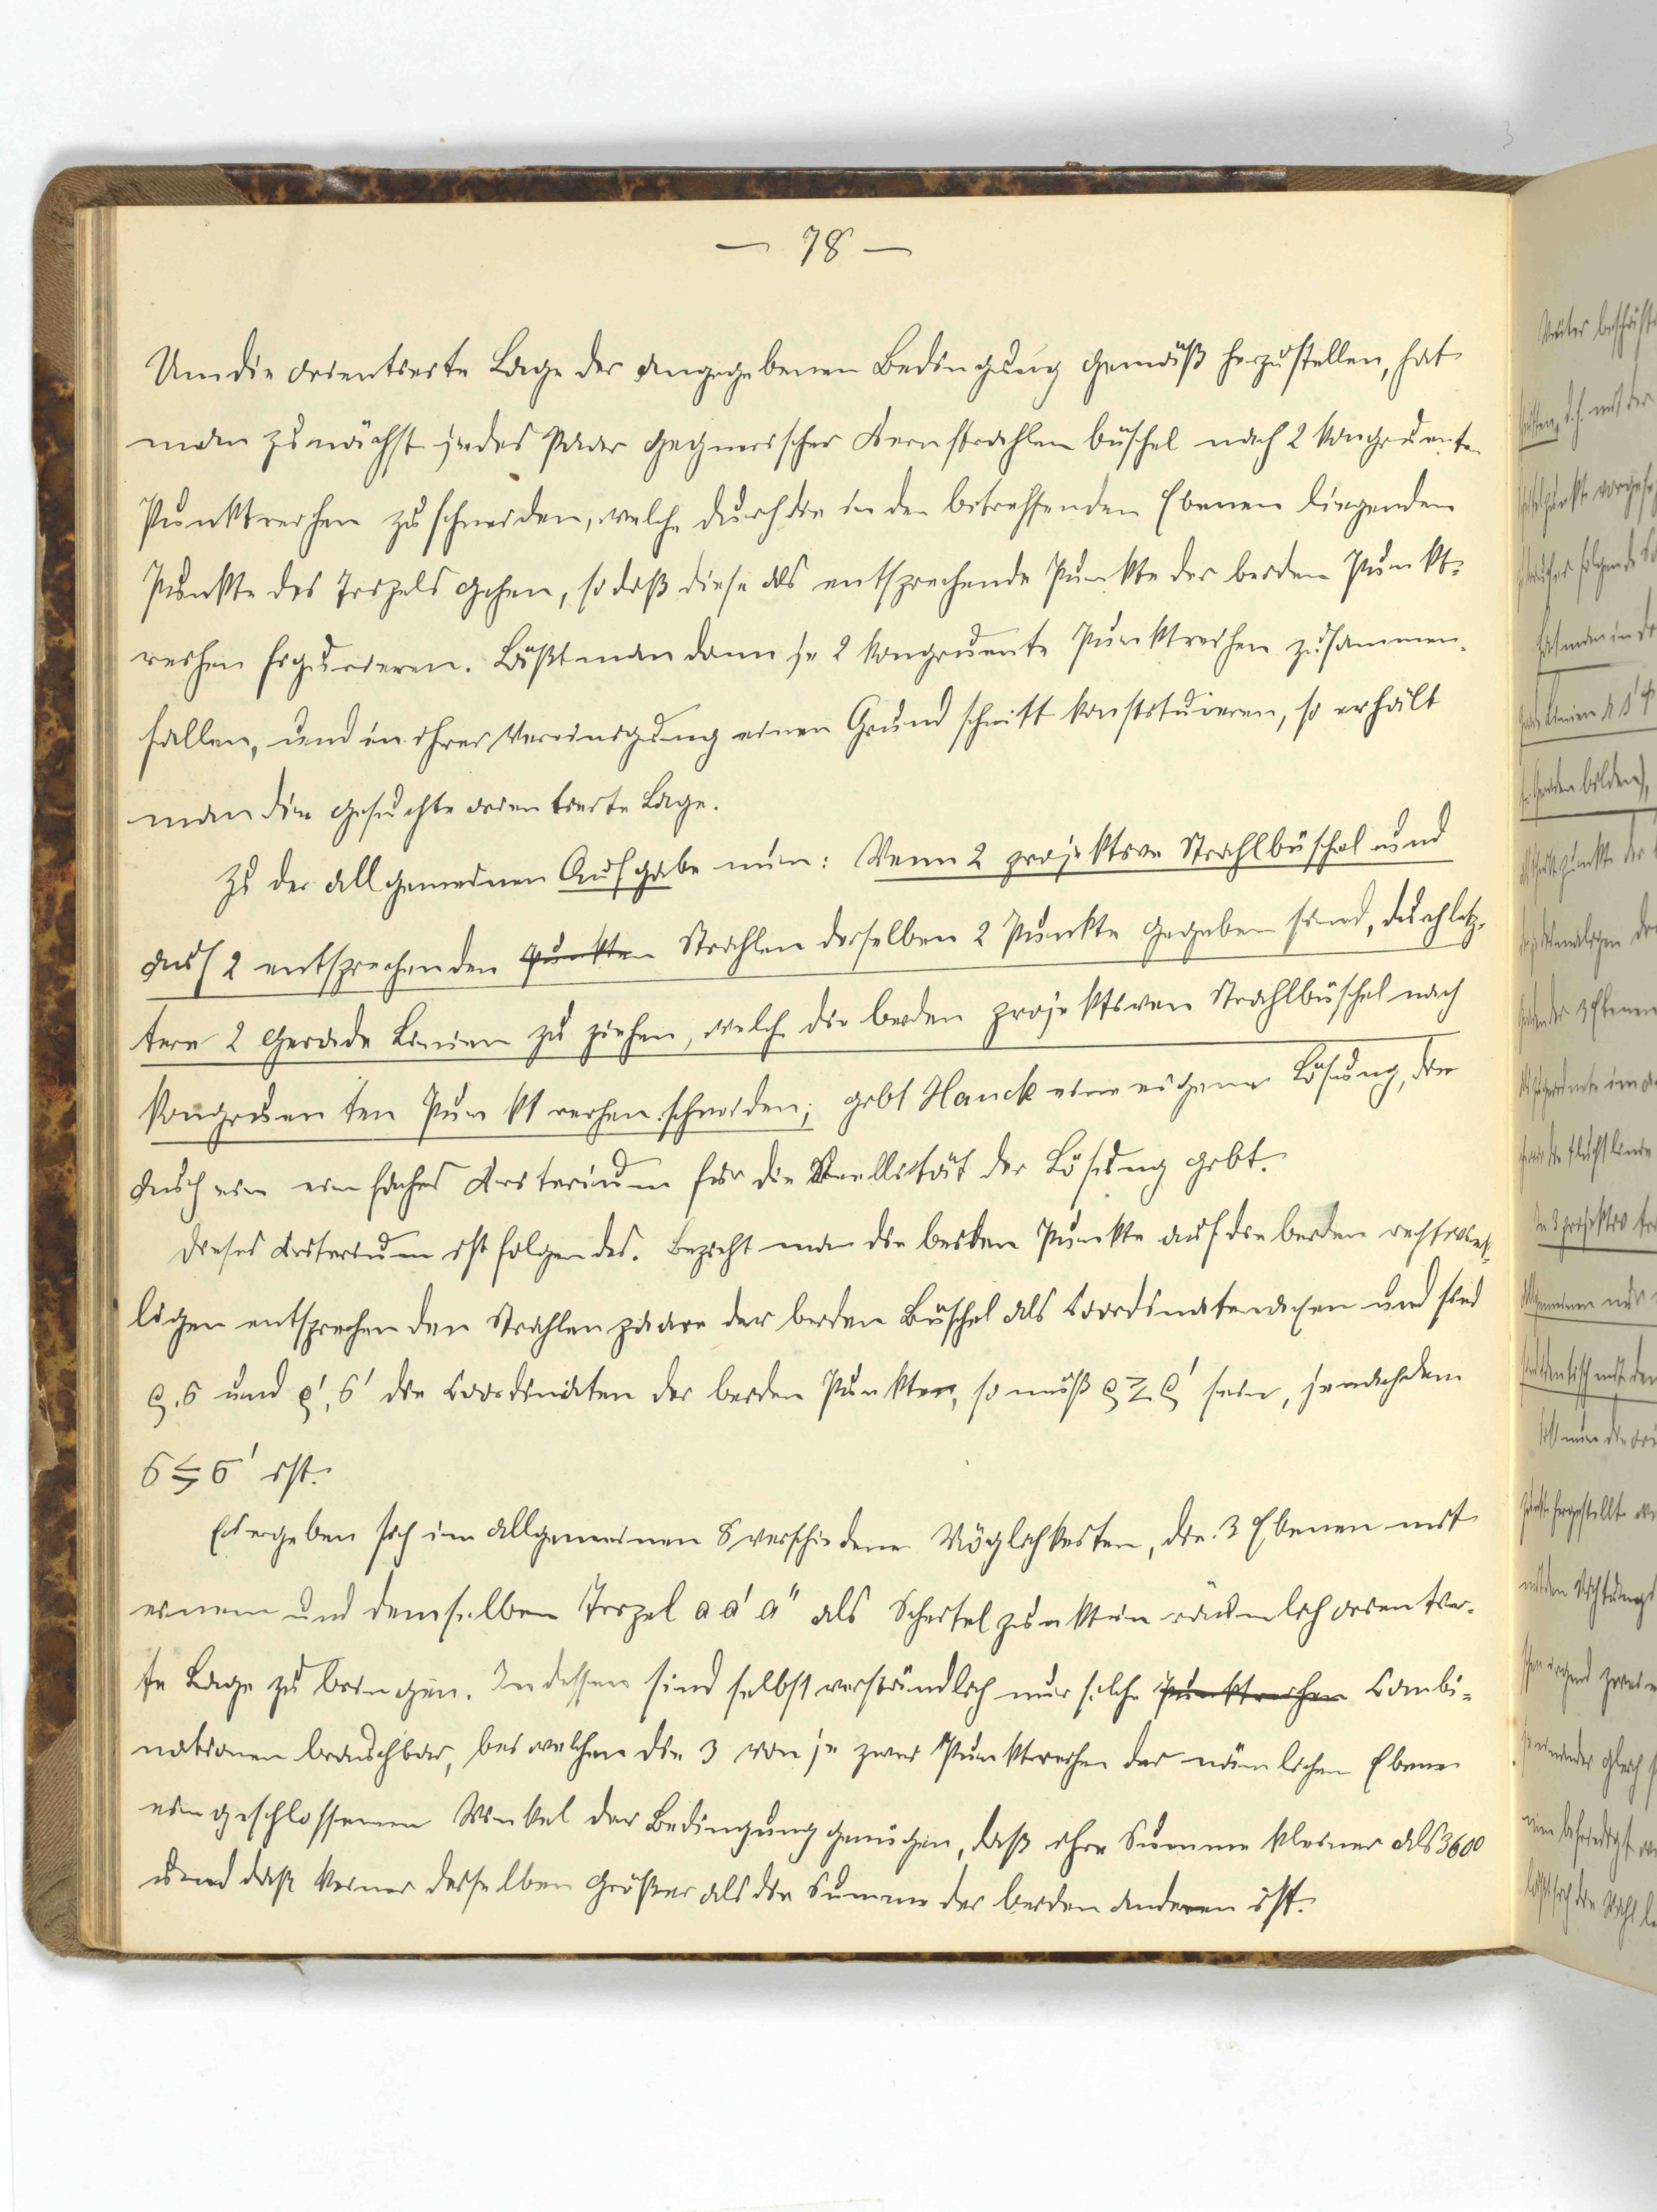 — 78 —
Um die orientierte Lage der angegebenen Bedingung gemäß herzustellen, hat
man zunächst jedes Paar gegnerischer Kernstrahlenbüschel nach 2 kongruenten
Punktreihen zu schneiden, welche durch die in den betreffenden Ebenen liegenden
Punkte des Tripels gehen, so daß diese als entsprechende Punkte der beiden Punkt-
reihen figurieren. Läßt man dann je 2 kongruente Punktreihen zusammen-
fallen, und in ihrer Vereinigung einen Grundschnitt konstituieren, so erhält
man die gesuchte orientierte Lage.
Zu der allgemeinen Aufgabe nun: Wenn 2 projektive Strahlbüschel und
auf 2 entsprechenden Punkten Strahlen derselben 2 Punkte gegeben sind, durch letz-
tere 2 gerade Linien zu ziehen, welche die beiden projektiven Strahlbüschel nach
kongruenten Punktreihen schneiden; gibt Hauck eine eigene Lösung, die
auch ein einfaches Kriterium für die Reellität der Lösung gibt.
Dieses Kriterium ist folgendes. Bezieht man die beiden Punkte auf die beiden rechtwink-
ligen entsprechenden Strahlenpaare der beiden Büschel als Coordinatenachsen und sind
ϱ, σ und ϱ', σ' die Coordinaten der beiden Punkte, so muß ϱ ≷ ϱ' sein, je nachdem
σ ≶ σ' ist.
Es ergeben sich im allgemeinen 8 verschiedene Möglichkeiten, die 3 Ebenen mit
einem und demselben Tripel a a' a" als Scheitelpunkte in räumlich orientier-
te Lage zu bringen. Indessen sind selbstverständlich nur solche Punktreihen Combi-
nationen brauchbar, bei welchen die 3 von je zwei Punktreihen der nämlichen Ebene
eingeschlossenen Winkel der Bedingung genügen, daß ihre Summe kleiner als 360°
und daß keiner derselben größer als die Summe der beiden anderen ist.